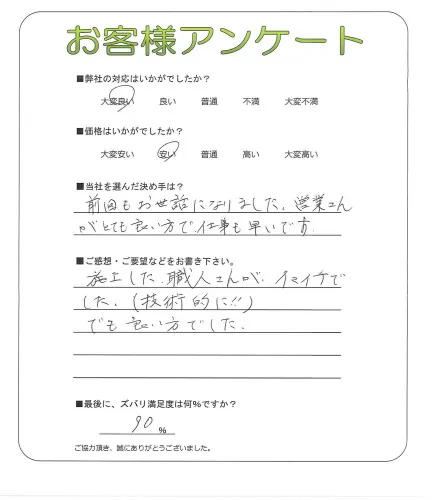 お客様アンケート
■弊社の対応はいかがでしたか？
大変良い 良い 普通 不満 大変不満
■価格はいかがでしたか？
大変安い 安い 普通 高い 大変高い
■当社を選んだ決め手は？
前回もお世話になりました。営業さん
がとても良い方で、仕事も早いです。
■ご感想・ご要望などをお書き下さい。
施工した職人さんが、イマイチで
した。(技術的に!!)
でも良い方でした。
■最後に、ズバリ満足度は何％ですか？
90 %
ご協力頂き、誠にありがとうございました。